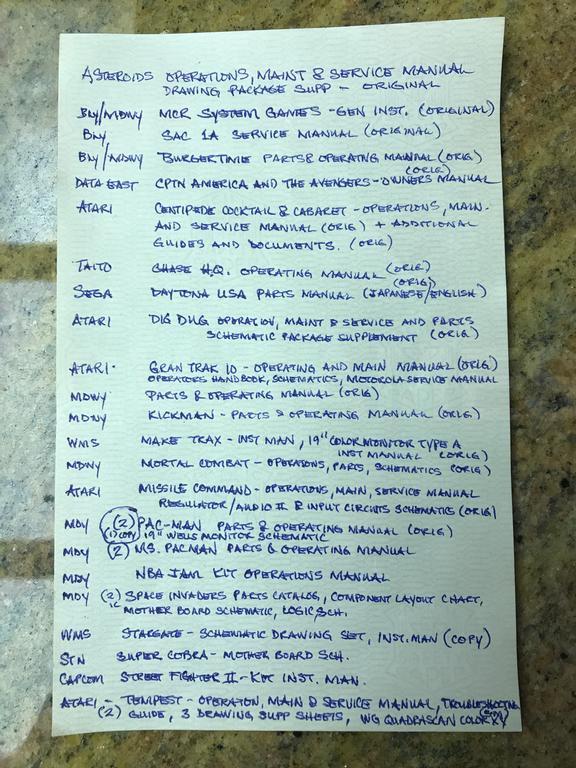 ASTEROIDS OPERATIONS, MAINT & SERVICE MANUAL
DRAWING PACKAGE SUPP - ORIGINAL
BLY//MDWY MCR SYSTEM GAMES - GEN INST. (ORIGINAL)
BLY SAC 1A SERVICE MANUAL (ORIGINAL)
BLY//MDWY BURGERTIME PARTS & OPERATING MANUAL (ORIG)
(ORIG)
DATA EAST CPTN AMERICA AND THE AVENGERS - OWNERS MANUAL
ATARI CENTIPEDE COCKTAIL & CABARET - OPERATIONS, MAIN.
AND SERVICE MANUAL (ORIG) + ADDITIONAL
GUIDES AND DOCUMENTS. (ORIG)
TAITO CHASE H.Q. OPERATING MANUAL (ORIG)
(ORIG)
SEGA DAYTONA USA PARTS MANUAL (JAPANESE/ENGLISH)
ATARI DIG DUG OPERATION, MAINT & SERVICE AND PARTS
SCHEMATIC PACKAGE SUPPLEMENT (ORIG)
ATARI GRAN TRAK 10 - OPERATING AND MAIN MANUAL (ORIG)
OPERATORS HANDBOOK, SCHEMATICS, MOTOROLA SERVICE MANUAL
MDWY PARTS & OPERATING MANUAL (ORIG)
MDWY KICKMAN - PARTS & OPERATING MANUAL (ORIG)
WMS MAKE TRAX - INST MAN, 19" COLOR MONITOR TYPE A
INST MANUAL (ORIG)
MDWY MORTAL COMBAT - OPERATIONS, PARTS, SCHEMATICS (ORIG)
ATARI MISSILE COMMAND - OPERATIONS, MAIN, SERVICE MANUAL
REGULATOR/AUDIO II & INPUT CIRCUITS SCHEMATICS (ORIG)
MDY (2) PAC-MAN PARTS & OPERATING MANUAL (ORIG)
(1) COPY 19" WELLS MONITOR SCHEMATIC
MDY (2) MS. PACMAN PARTS & OPERATING MANUAL
MDY NBA JAM KIT OPERATIONS MANUAL
MDY (2) SPACE INVADERS PARTS CATALOG, COMPONENT LAYOUT CHART,
MOTHER BOARD SCHEMATIC, LOGIC SCH.
WMS STARGATE - SCHEMATIC DRAWING SET, INST. MAN (COPY)
STN SUPER COBRA - MOTHER BOARD SCH.
CAPCOM STREET FIGHTER II - KIT INST. MAN.
ATARI - TEMPEST - OPERATION, MAIN & SERVICE MANUAL, TROUBLESHOOTING
(2) GUIDE, 3 DRAWING SUPP SHEETS, WG QUADRASCAN COLOR XY